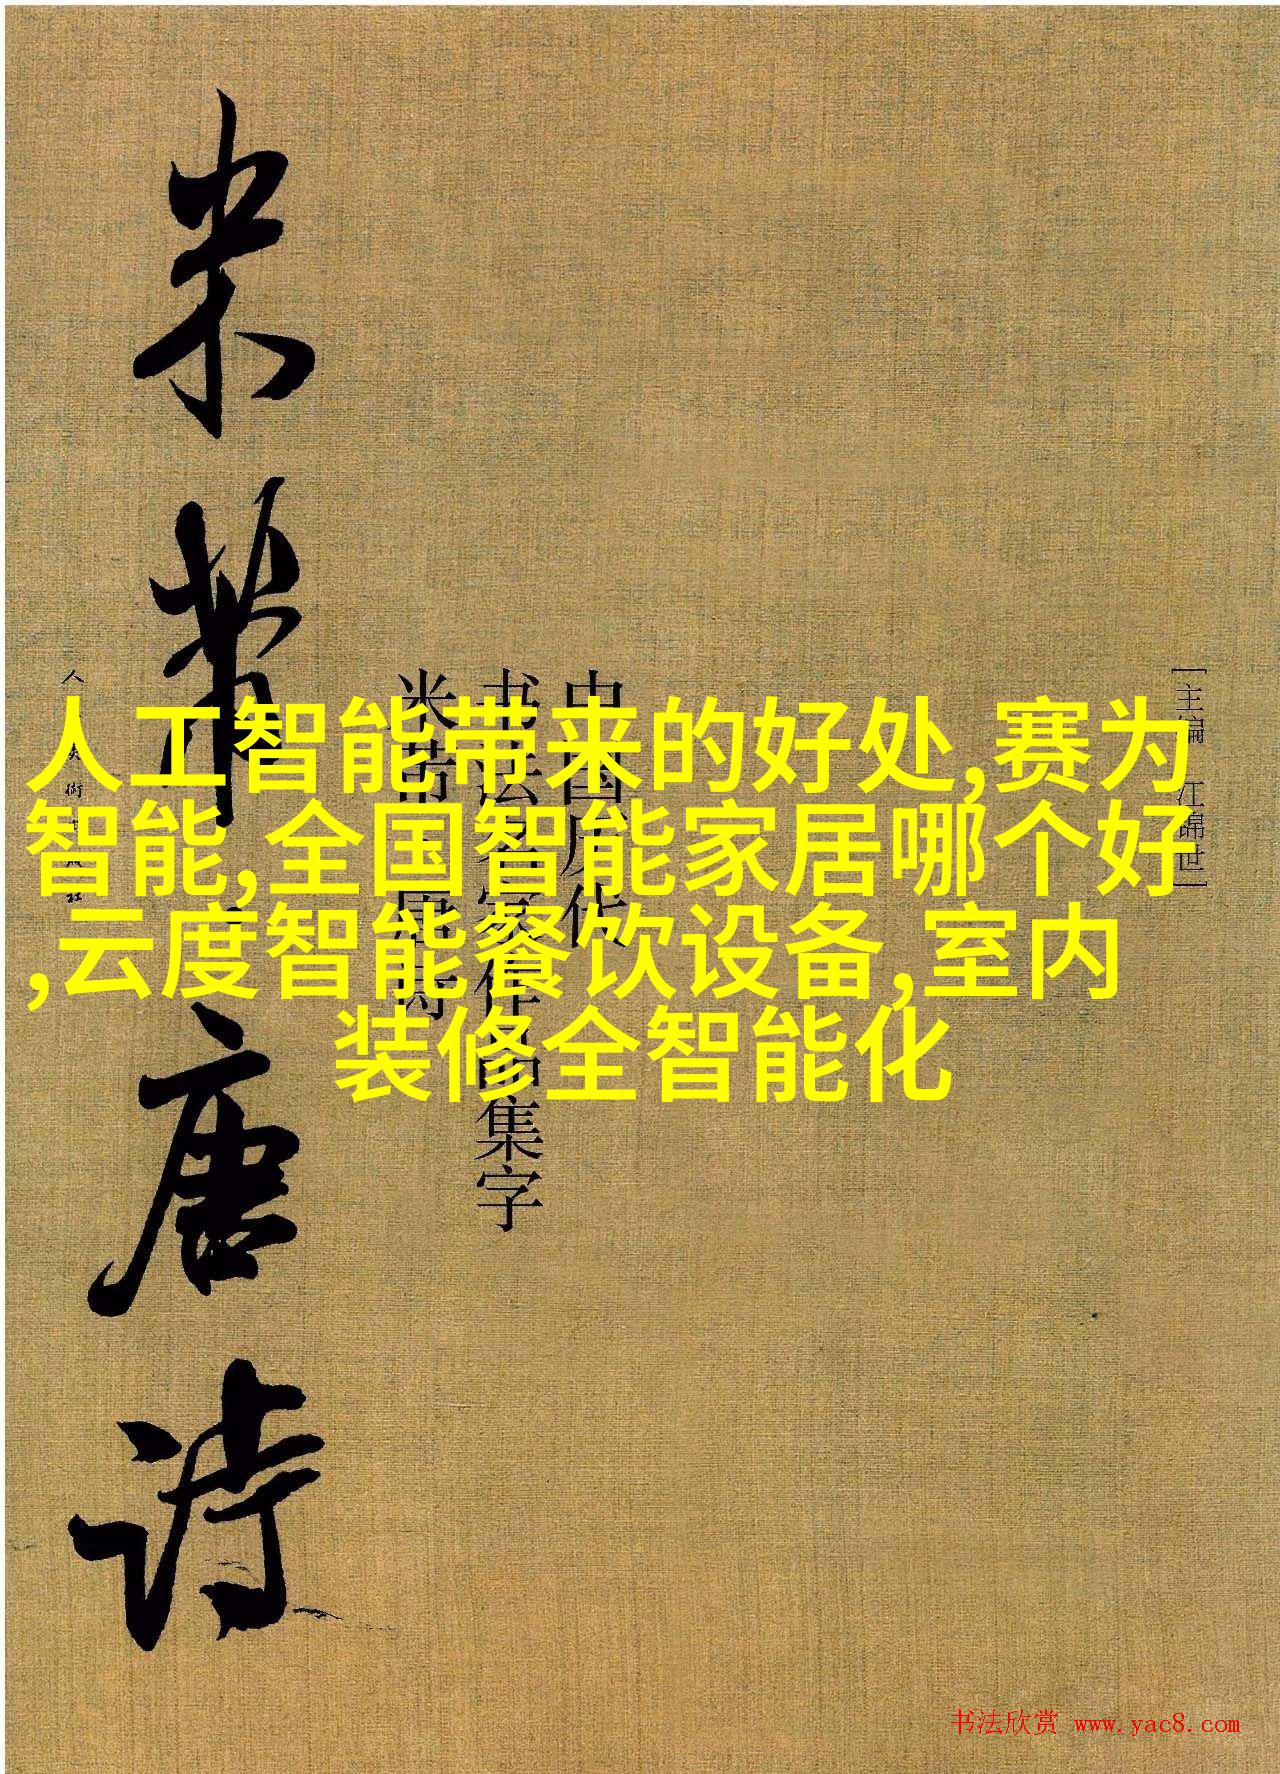 人工智能带来的好处,赛为
智能,全国智能家居哪个好
,云度智能餐饮设备,室内
装修全智能化
米芾·唐诗
中国历代
书法名家作品集字
米芾·唐诗
[主编 江锦世]
书法欣赏 www.yac8.com